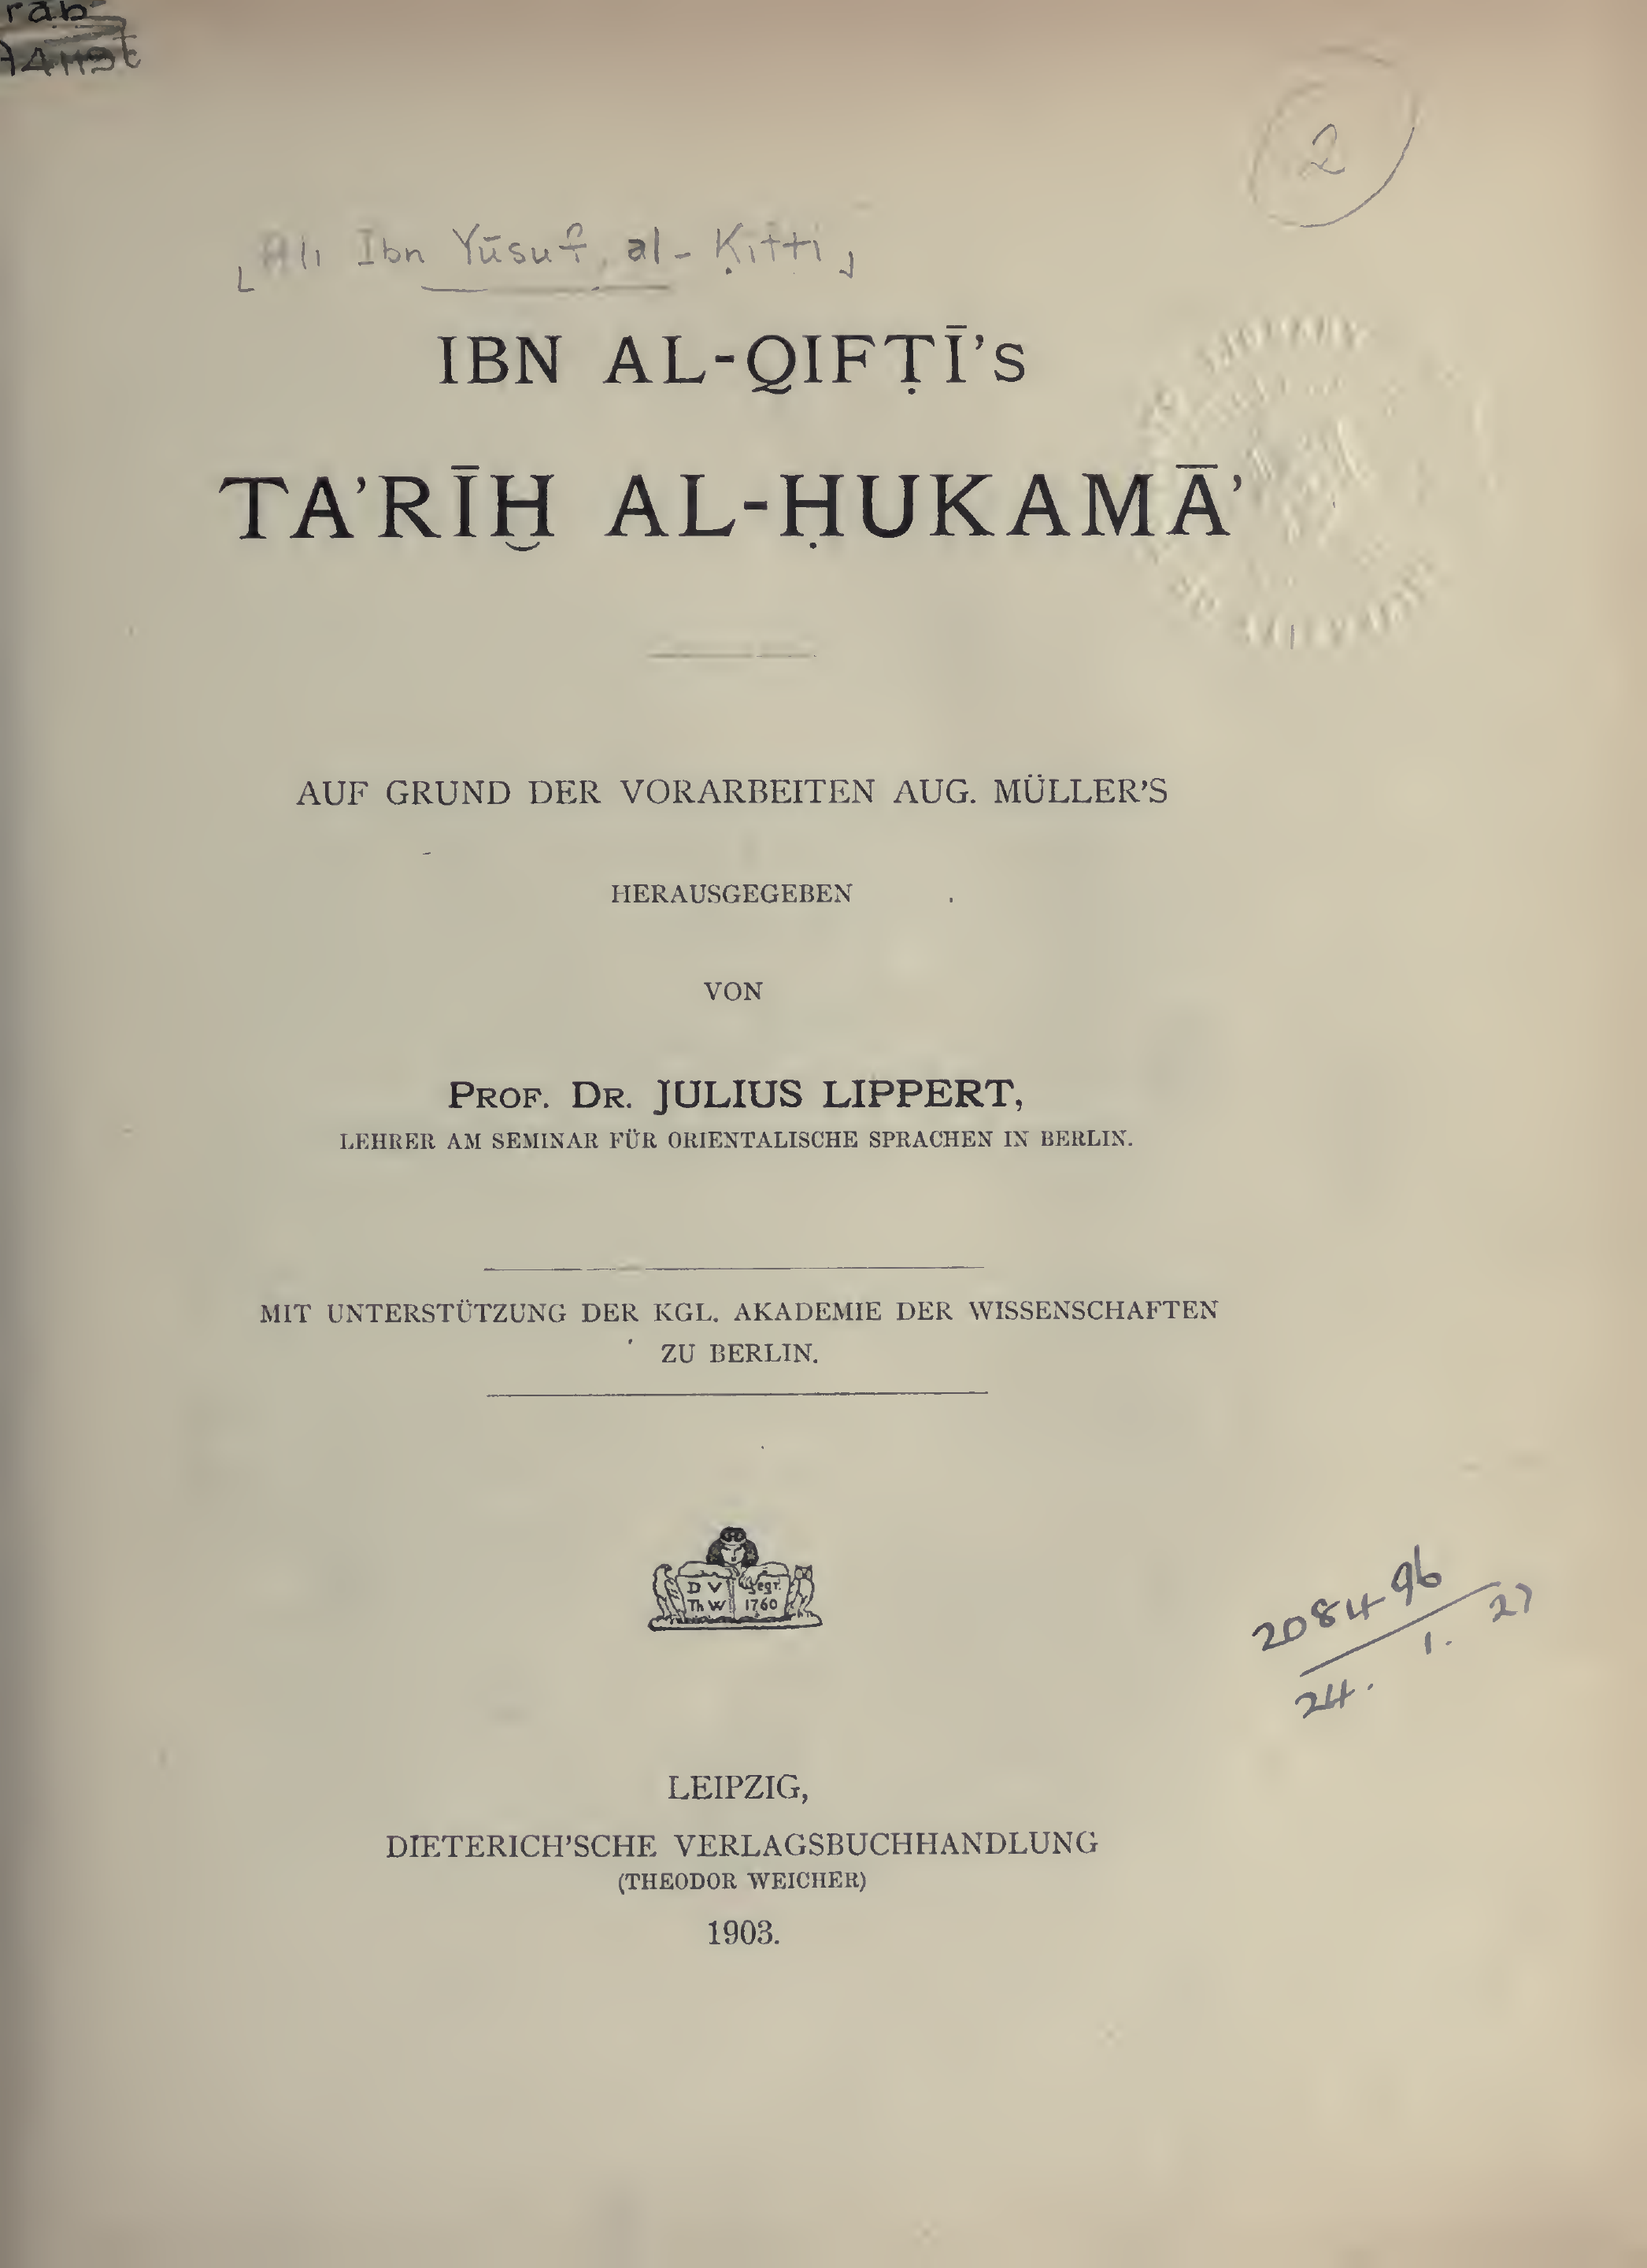 rab
2
Ali Ibn Yūsuf, al-Ḳifti
IBN AL-QIFṬĪ’s
TA’RĪḪ AL-ḤUKAMĀ’
AUF GRUND DER VORARBEITEN AUG. MÜLLER’S
HERAUSGEGEBEN
VON
PROF. DR. JULIUS LIPPERT,
LEHRER AM SEMINAR FÜR ORIENTALISCHE SPRACHEN IN BERLIN.
MIT UNTERSTÜTZUNG DER KGL. AKADEMIE DER WISSENSCHAFTEN
ZU BERLIN.
D V gegr.
Th W 1760
208496
24. 1. 27
LEIPZIG,
DIETERICH’SCHE VERLAGSBUCHHANDLUNG
(THEODOR WEICHER)
1903.